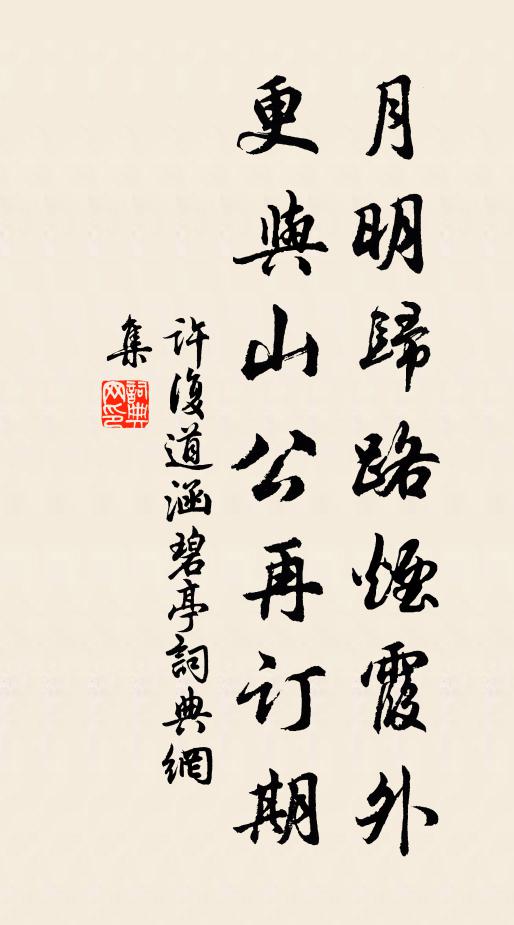 月明歸路煙霞外
更與山公再订期
許復道涵碧亭詞典網
集
詞典
网印